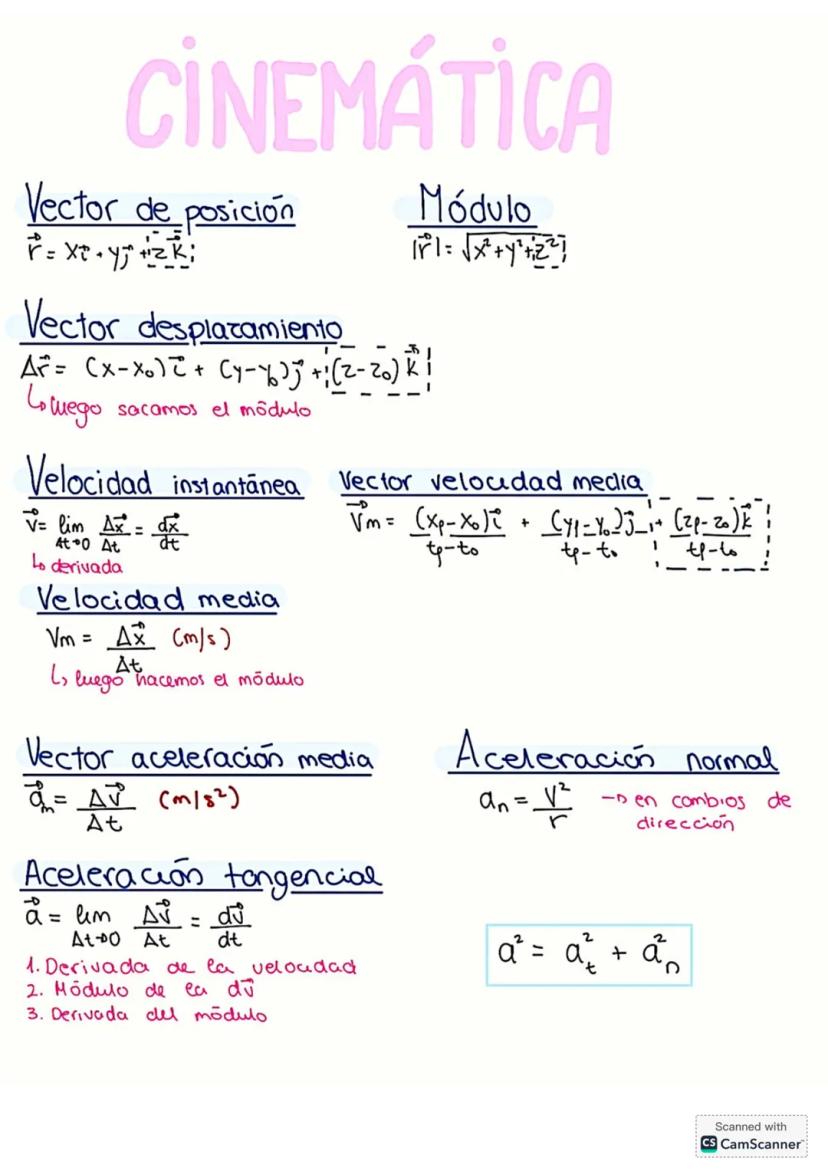 CINEMÁTICA
Vector de posición
r⃗ = xi⃗ + yj⃗ + zk⃗
Módulo
|r⃗| = √x²+y²+z²
Vector desplazamiento
Δr⃗ = (x-x₀)i⃗ + (y-y₀)j⃗ + (z-z₀)k⃗
↳ luego sacamos el módulo
Velocidad instantánea
v⃗ = lim Δt→0 Δx⃗/Δt = dx⃗/dt
↳ derivada
Vector velocidad media
v⃗m = (xf-x₀)i⃗/tf-t₀ + (yf-y₀)j⃗/tf-t₀ + (zf-z₀)k⃗/tf-t₀
Velocidad media
Vm = Δx⃗/Δt (m/s)
↳ luego hacemos el módulo
Vector aceleración media
a⃗m = Δv⃗/Δt (m/s²)
Aceleración normal
an = V²/r → en cambios de
dirección
Aceleración tangencial
a⃗ = lim Δt→0 Δv⃗/Δt = dv⃗/dt
1. Derivada de la velocidad
2. Módulo de la dv⃗
3. Derivada del módulo
a² = a²t + a²n
Scanned with
CS CamScanner